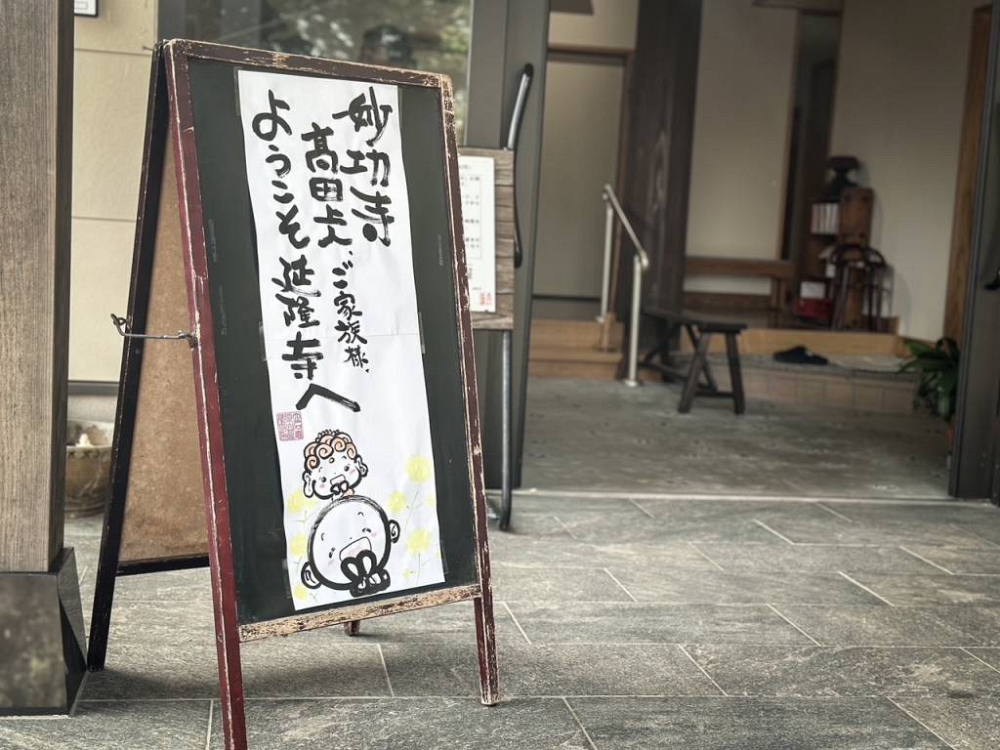 妙功寺
髙田上人、ご家族様、
ようこそ延隆寺へ